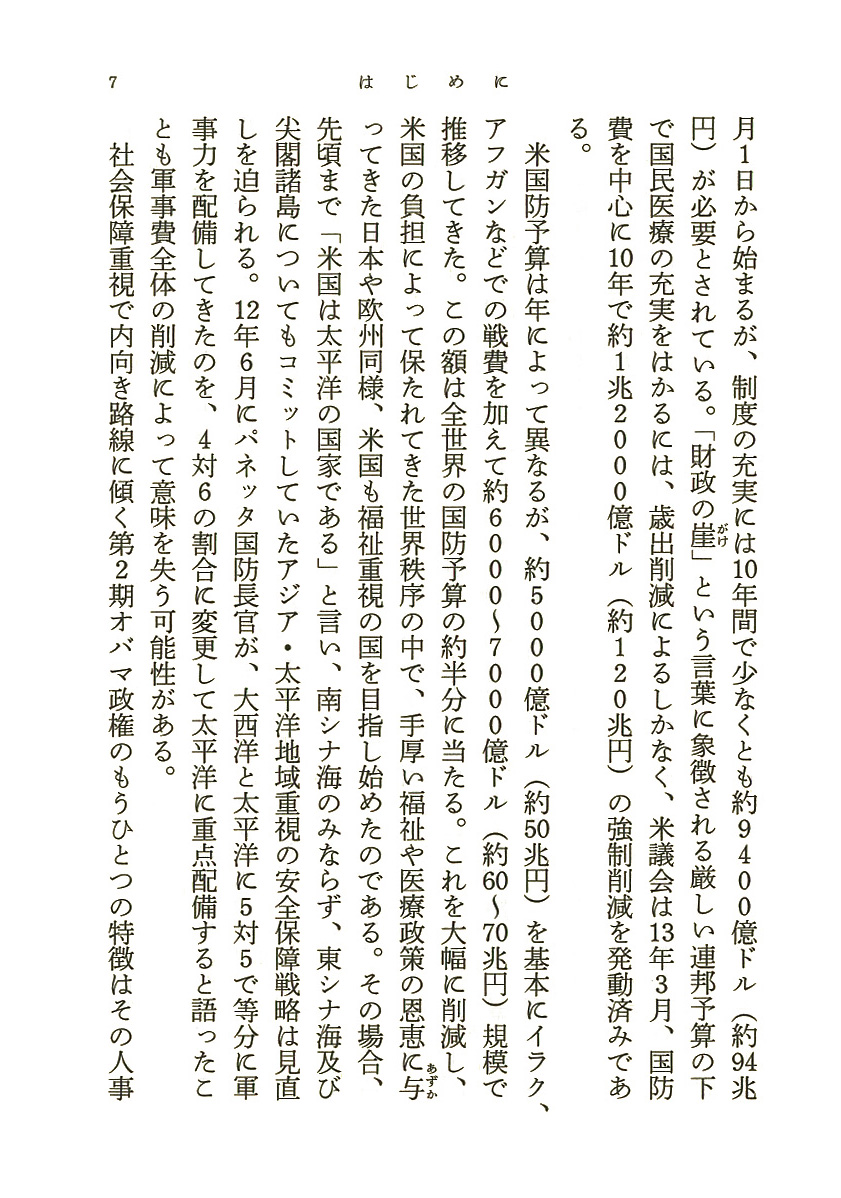 はじめに
7
月1日から始まるが、制度の充実には10年間で少なくとも約9400億ドル（約94兆
円）が必要とされている。「財政の崖」という言葉に象徴される厳しい連邦予算の下
がけ
で国民医療の充実をはかるには、歳出削減によるしかなく、米議会は13年3月、国防
費を中心に10年で約1兆2000億ドル（約120兆円）の強制削減を発動済みであ
る。
米国防予算は年によって異なるが、約5000億ドル（約50兆円）を基本にイラク、
アフガンなどでの戦費を加えて約6000〜7000億ドル（約60〜70兆円）規模で
推移してきた。この額は全世界の国防予算の約半分に当たる。これを大幅に削減し、
米国の負担によって保たれてきた世界秩序の中で、手厚い福祉や医療政策の恩恵に与
あずか
ってきた日本や欧州同様、米国も福祉重視の国を目指し始めたのである。その場合、
先頃まで「米国は太平洋の国家である」と言い、南シナ海のみならず、東シナ海及び
尖閣諸島についてもコミットしていたアジア・太平洋地域重視の安全保障戦略は見直
しを迫られる。12年6月にパネッタ国防長官が、大西洋と太平洋に5対5で等分に軍
事力を配備してきたのを、4対6の割合に変更して太平洋に重点配備すると語ったこ
とも軍事費全体の削減によって意味を失う可能性がある。
社会保障重視で内向き路線に傾く第2期オバマ政権のもうひとつの特徴はその人事